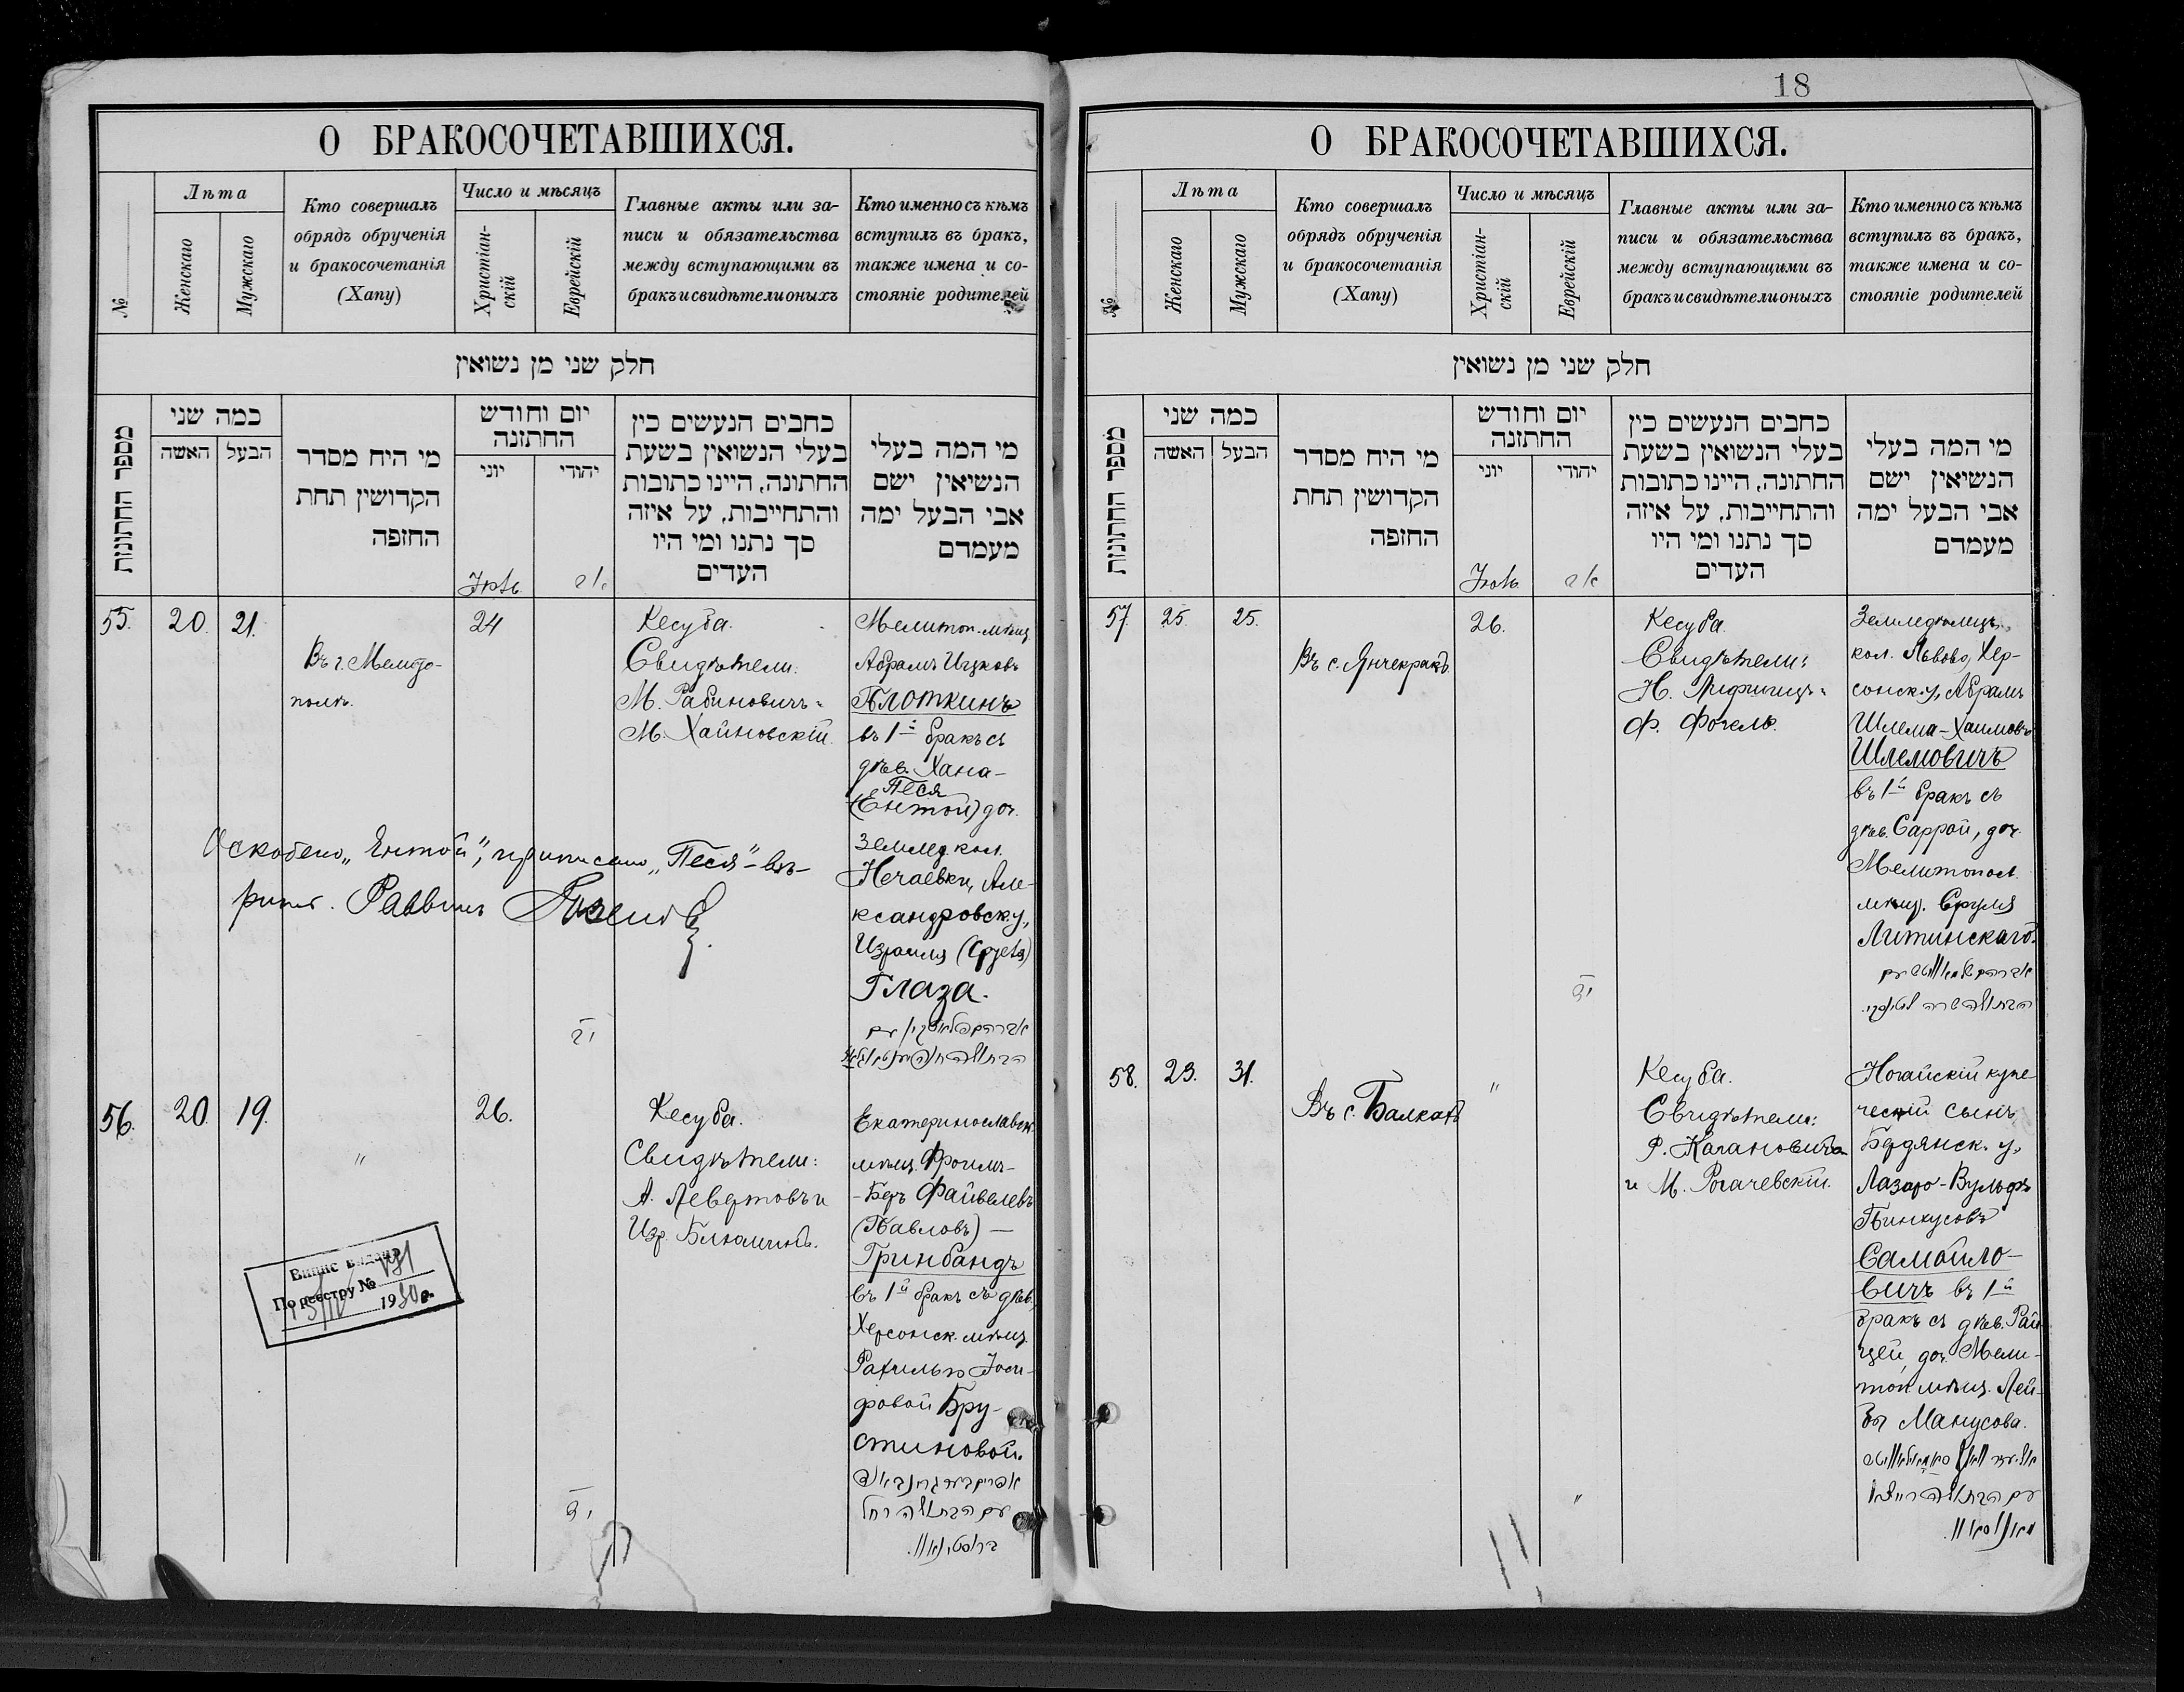 О БРАКОСОЧЕТАВШИХСЯ.
№
Лѣта
Женскаго
Мужскаго
Кто совершалъ
обрядъ обрученія
и бракосочетанія
(Хапу)
Число и мѣсяцъ
Христіан-
скій
Еврейскій
Главные акты или за-
писи и обязательства
между вступающими въ
бракъ и свидѣтели оныхъ
Кто именно съ кѣмъ
вступилъ въ бракъ,
также имена и со-
стояніе родителей
חלק שני מן נשואין
מספר החתונות
כמה שני
האשה
הבעל
מי היח מסדר
הקדושין תחת
החזפה
יום וחודש
החתזנה
יוני
יהודי
כחבים הנעשים כין
בעלי הנשואין בשעת
החתונה, היינו כתובות
והתחייבות, על איזה
סך נתנו ומי היו
העדים
מי המה בעלי
הנשיאין ישם
אבי הבעל ימה
מעמדם
Іюль
55.
20.
21.
Въ г. Мелито-
полѣ.
24
Кесуба.
Свидѣтели:
М. Рабиновичъ
М. Хайновскій.
Мелитоп. мѣщ
Абрамъ Ицковъ
Плоткинъ
въ 1й бракъ съ
дѣв. Хана-
Песя
(Ентой) доч.
землед. кол.
Нечаевки, Але-
ксандровск. у.,
Израиля (Сруля)
Глаза.
Оскоблено „Ентой“, приписано „Песя“ - вѣ-
рить. Раввинъ
56.
20.
19.
"
26.
Кесуба.
Свидѣтели:
А. Левертовъ и
Изр. Блюминъ.
Екатеринославск.
мѣщ. Фроимъ-
-Беръ Файвелевъ
(Павловъ) —
Гринбандъ
въ 1й бракъ съ дѣв.
Херсонск. мѣщ.
Рахилью Іоси-
фовой Бру-
стиновой.
עם הבתולה רחל
Випис видано
По реєстру № 191
1930 р.
18
О БРАКОСОЧЕТАВШИХСЯ.
№
Лѣта
Женскаго
Мужскаго
Кто совершалъ
обрядъ обрученія
и бракосочетанія
(Хапу)
Число и мѣсяцъ
Христіан-
скій
Еврейскій
Главные акты или за-
писи и обязательства
между вступающими въ
бракъ и свидѣтели оныхъ
Кто именно съ кѣмъ
вступилъ въ бракъ,
также имена и со-
стояніе родителей
חלק שני מן נשואין
מספר החתונות
כמה שני
האשה
הבעל
מי היח מסדר
הקדושין תחת
החזפה
יום וחודש
החתזנה
יוני
יהודי
כחבים הנעשים כין
בעלי הנשואין בשעת
החתונה, היינו כתובות
והתחייבות, על איזה
סך נתנו ומי היו
העדים
מי המה בעלי
הנשיאין ישם
אבי הבעל ימה
מעמדם
Іюль
57.
25.
25.
Въ с. Янчекракъ
26.
Кесуба.
Свидѣтели:
Н. Лифшицъ
Ф. Фогель.
Земледѣлецъ
кол. Львово, Хер-
сонск. у., Абрамъ
Шлема-Хаимовъ
Шлемовичъ
въ 1й бракъ съ
дѣв. Саррой, доч.
Мелитопол.
мѣщ. Сруля
Литинскаго.
58.
23.
31.
Въ с. Балкахъ
"
Кесуба.
Свидѣтели:
Р. Кагановичъ
и М. Рогачевскій.
Ногайскій купе
ческій сынъ,
Бердянск. у.,
Лазарь-Вульфъ
Пинкусовъ
Самойло-
вичъ въ 1й
бракъ съ дѣв. Рай-
цей, доч. Мели-
топ. мѣщ. Лей-
бы Манусова.
"